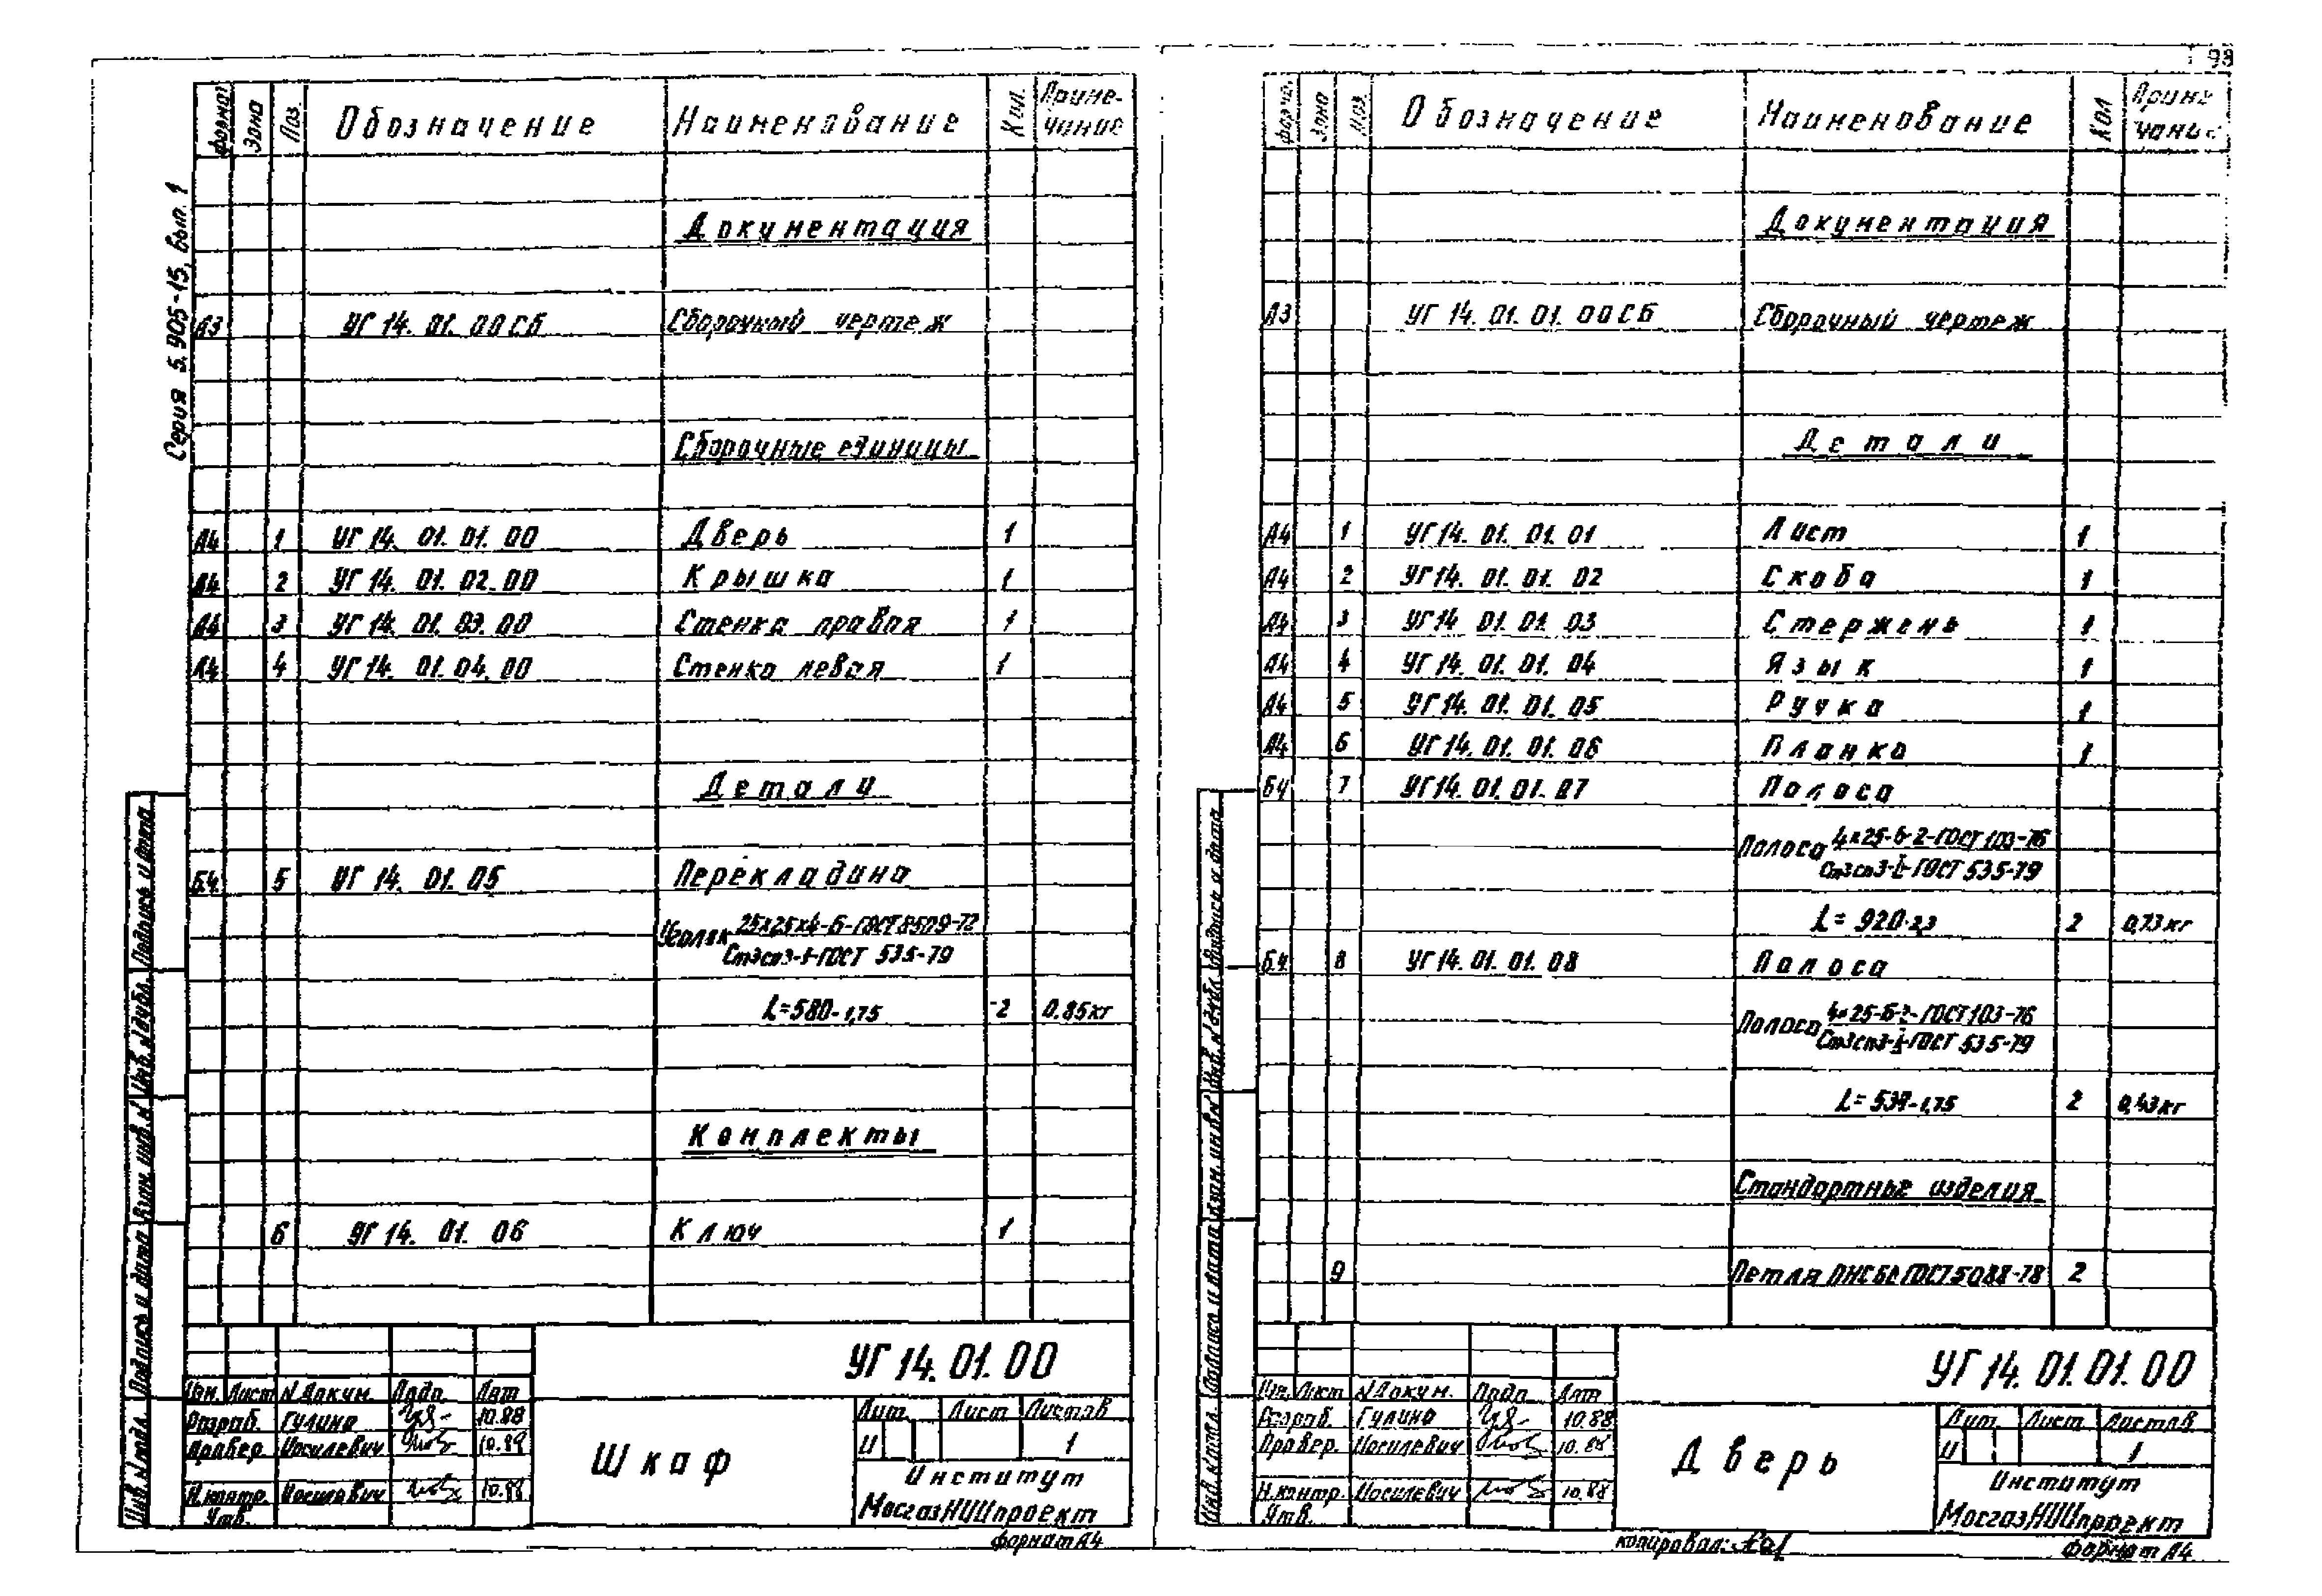 98
Серия 5.905-15, вып. 1
Формат Зона Поз. Обозначение Наименование Кол. Примечание
Документация
А3 УГ 14. 01. 00 СБ Сборочный чертеж
Сборочные единицы
А4 1 УГ 14. 01. 01. 00 Дверь 1
А4 2 УГ 14. 01. 02. 00 Крышка 1
А4 3 УГ 14. 01. 03. 00 Стенка правая 1
А4 4 УГ 14. 01. 04. 00 Стенка левая 1
Детали
Б.Ч. 5 УГ 14. 01. 05 Перекладина
Уголок 25х25х4-Б-ГОСТ 8509-72
Ст3сп3-1-ГОСТ 535-79
L=580-1,75 2 0.85кг
Комплекты
6 УГ 14. 01. 06 Ключ 1
Инв. N подл. Подпись и дата Взам. инв. N Инв. N дубл. Подпись и дата
УГ 14. 01. 00
Изм. Лист N Докум. Подп. Дат
Разраб. Гулина 10.88
Провер. Иосилевич
Н.контр. Иосилевич 10.88
Утв.
Шкаф
Лит. Лист Листов
И 1
Институт
МосгазНИИпроект
формат А4
Формат Зона Поз. Обозначение Наименование Кол Примечание
Документация
А3 УГ 14. 01. 01. 00 СБ Сборочный чертеж
Детали
А4 1 УГ 14. 01. 01. 01 Лист 1
А4 2 УГ 14. 01. 01. 02 Скоба 1
А4 3 УГ 14 01. 01. 03 Стержень 1
А4 4 УГ 14. 01. 01. 04 Язык 1
А4 5 УГ 14. 01. 01. 05 Ручка 1
А4 6 УГ 14. 01. 01. 06 Планка 1
БЧ 7 УГ 14. 01. 01. 07 Полоса
Полоса 4х25-Б-2-ГОСТ 103-76
Ст3сп3-1-ГОСТ 535-79
L= 920-2,3 2 0,73кг
Б.Ч. 8 УГ 14. 01. 01. 08 Полоса
Полоса 4х25-Б-2-ГОСТ 103-76
Ст3сп3-1-ГОСТ 535-79
2 0,43кг
Стандартные изделия
9 Петля ГОСТ 5088-78 2
Инв. N подл. Подпись и дата Взам. инв. N Инв. N дубл. Подпись и дата
УГ 14. 01. 01. 00
Изм. Лист N Докум. Подп. Дат
Разраб. Гулина 10.88
Провер. Иосилевич 10.88
Н.контр Иосилевич 10.88
Утв.
Дверь
Лит. Лист Листов
И 1
Институт
МосгазНИИпроект
копировал:
формат А4